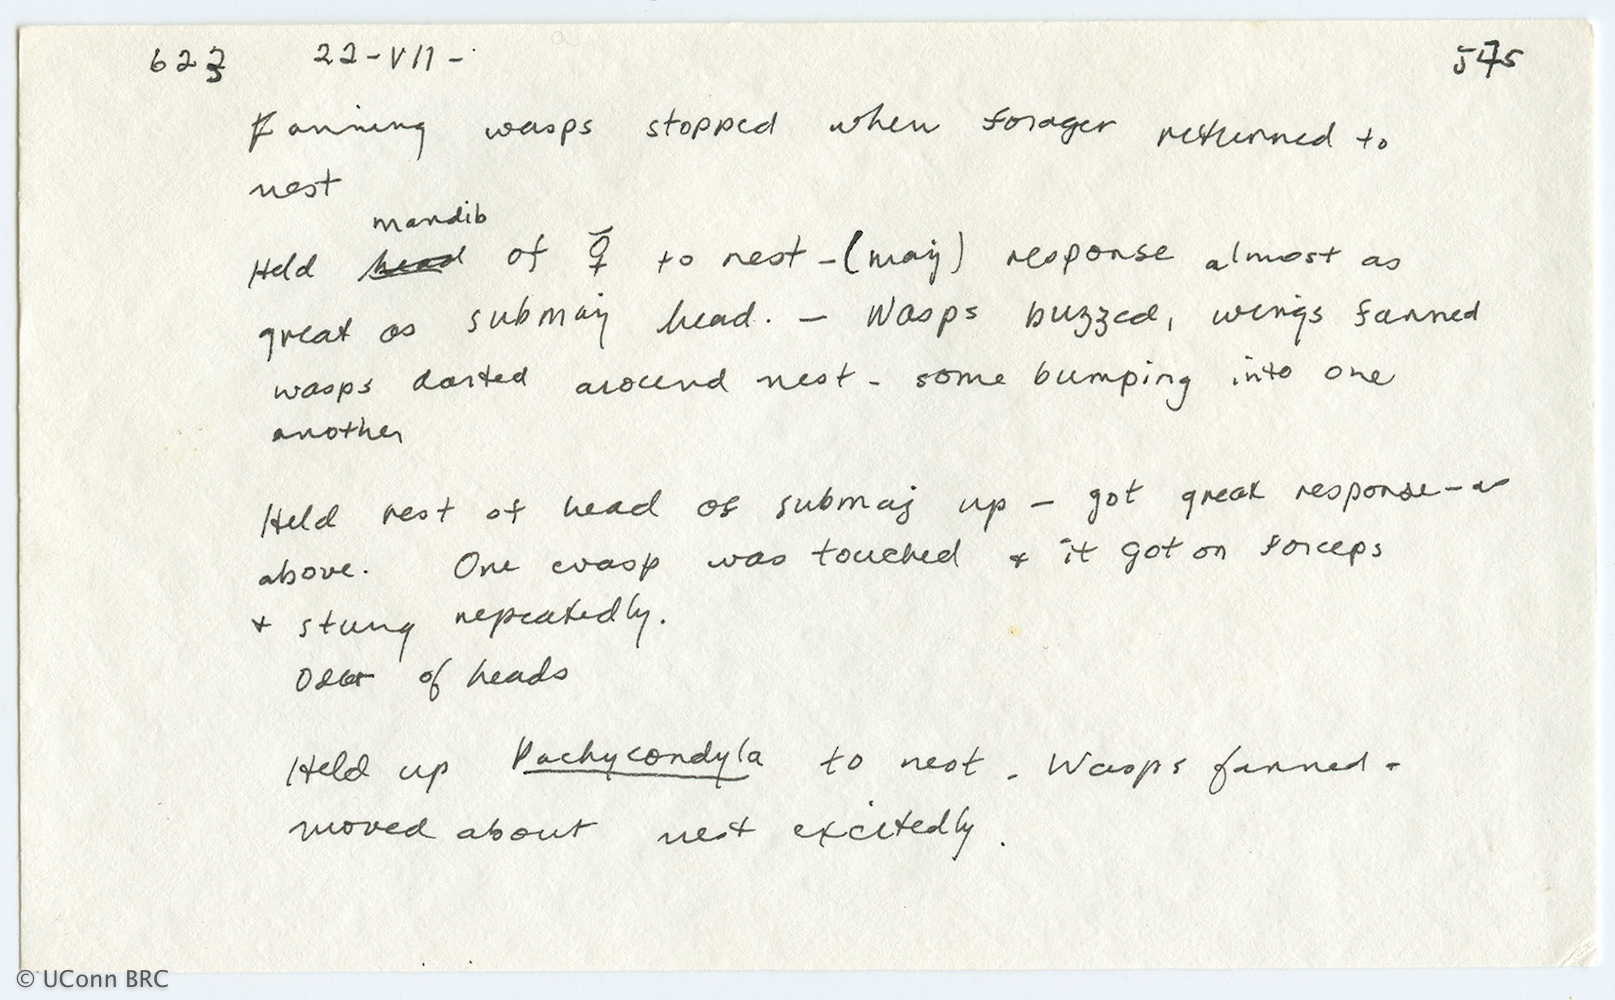 623 22-VII- 575
Fanning wasps stopped when forager returned to
nest
mandib
Held head of ☿ to nest - (maj) response almost as
great as submaj head. - Wasps buzzed, wings fanned
wasps darted around nest - some bumping into one
another
Held rest of head of submaj up - got great response - as
above. One wasp was touched + it got on forceps
+ stung repeatedly.
Odor of heads
Held up Pachycondyla to nest. Wasps fanned -
moved about nest excitedly.
© UConn BRC